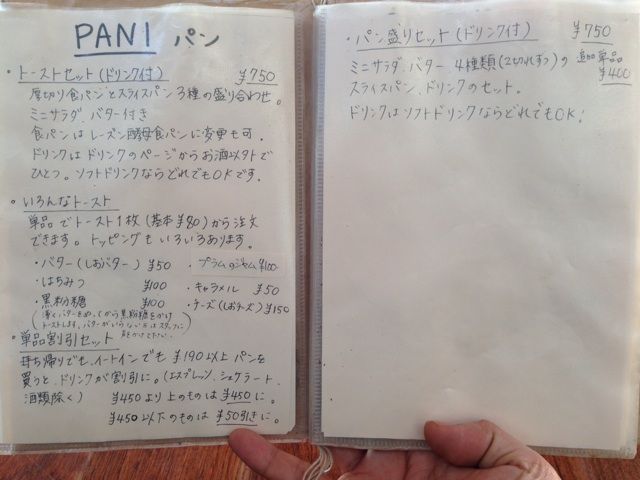 PANI パン
・トーストセット(ドリンク付) ¥750
厚切り食パンとスライスパン3種の盛り合わせ。
ミニサラダ、バター付き
食パンはレーズン酵母食パンに変更も可.
ドリンクはドリンクのページからお酒以外で
ひとつ。ソフトドリンクならどれでもOKです。
・いろんなトースト
単品でトースト1枚(基本¥80)から注文
できます。トッピングもいろいろあります。
・バター(しおバター) ¥50 ・プラムのジャム ¥100
・はちみつ ¥100 ・キャラメル ¥50
・黒粉糖 ¥100 ・チーズ(しおチーズ) ¥150
(薄くバターをぬってから黒粉糖をかけ
トーストします。バターがいらない方はスタッフに
声をかけて下さい.
・単品割引セット
持ち帰りでも、イートインでも ¥190以上 パンを
買うと、ドリンクが割引に。(エスプレッソ、シェケラート、
酒類除く) ¥450より上のものは ¥450に。
¥450以下のものは ¥50引きに。
・パン盛りセット(ドリンク付) ¥750
ミニサラダ、バター、4種類(2切れずつ)の 追加単品 ¥400
スライスパン、ドリンクのセット。
ドリンクはソフトドリンクならどれでもOK!